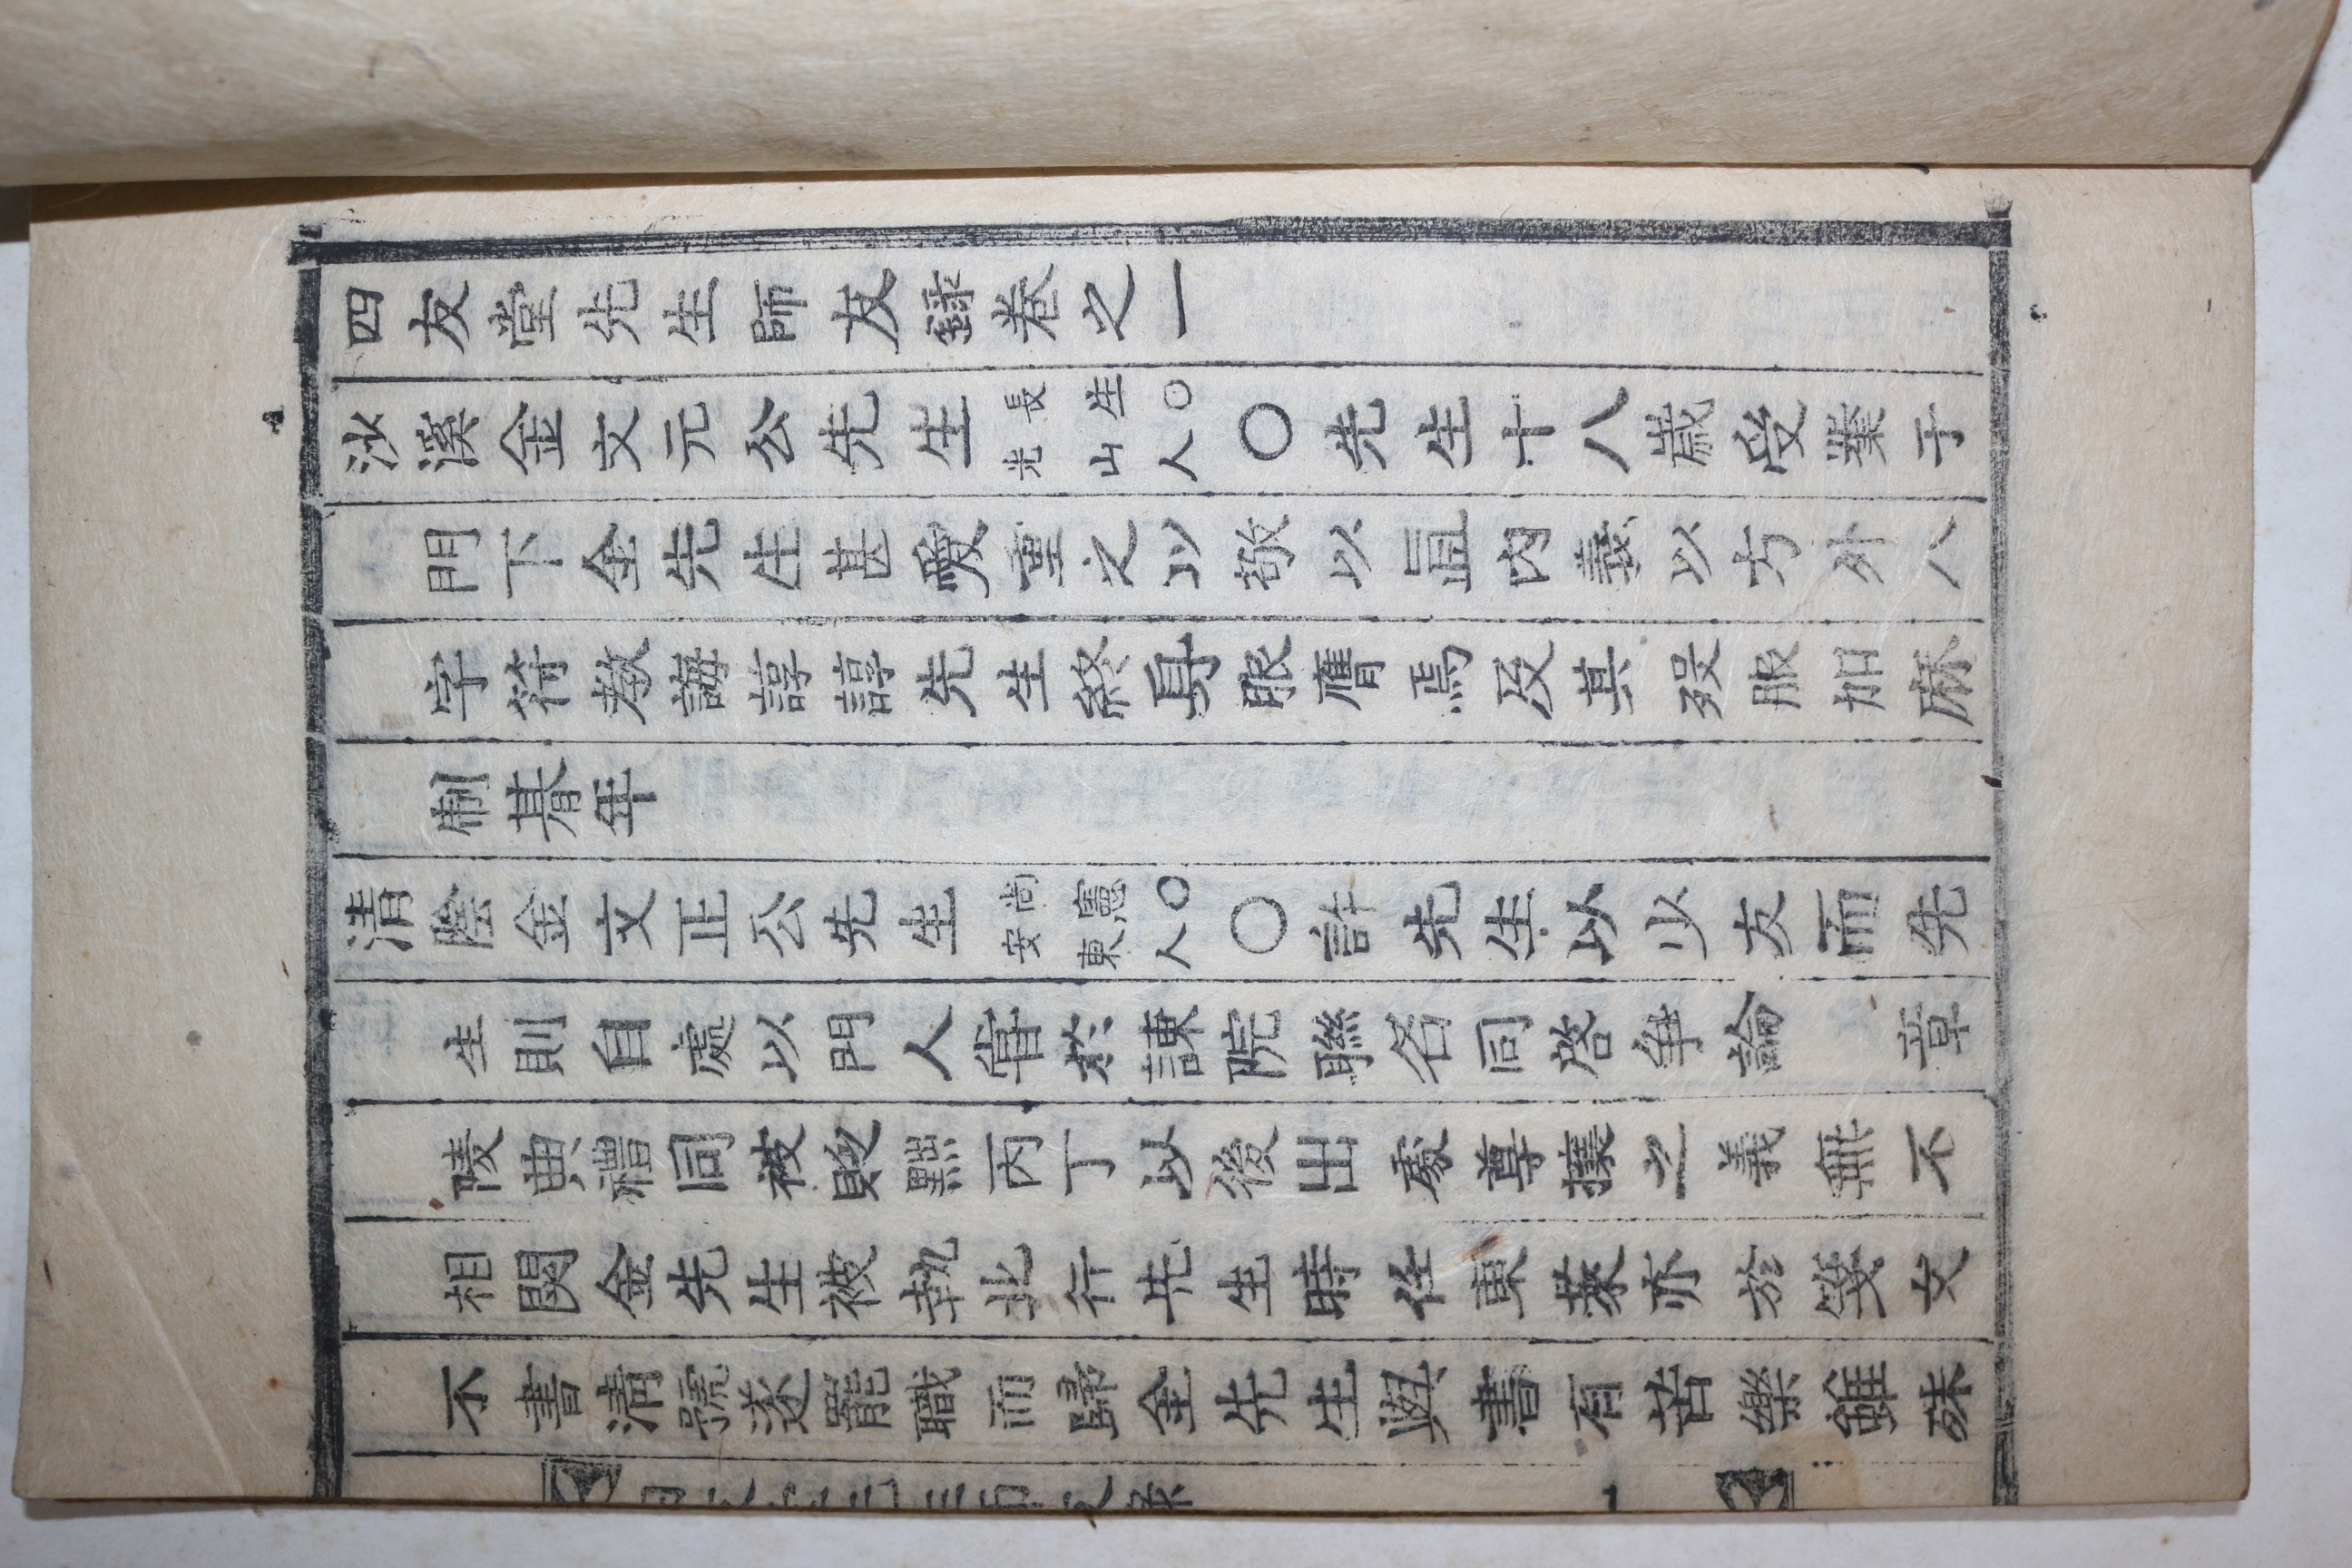 四友堂先生師友錄卷之一
沙溪金文元公先生長生○光山人○先生十八歲受業于
門下金先生甚愛重之以敬以直內義以方外八
字符教誨諄諄先生終身服膺焉及其歿服加麻
制朞年
清陰金文正公先生尙憲○安東人○許先生以少友而先
生則自處以門人甞於諫院聯名同啓爭論 章
陵典禮同被貶黜丙丁以後出處尊攘之義無不
相關金先生被執北行先生時任東萊亦於箋文
不書清號遂罷職而歸金先生與書有苦樂雖殊